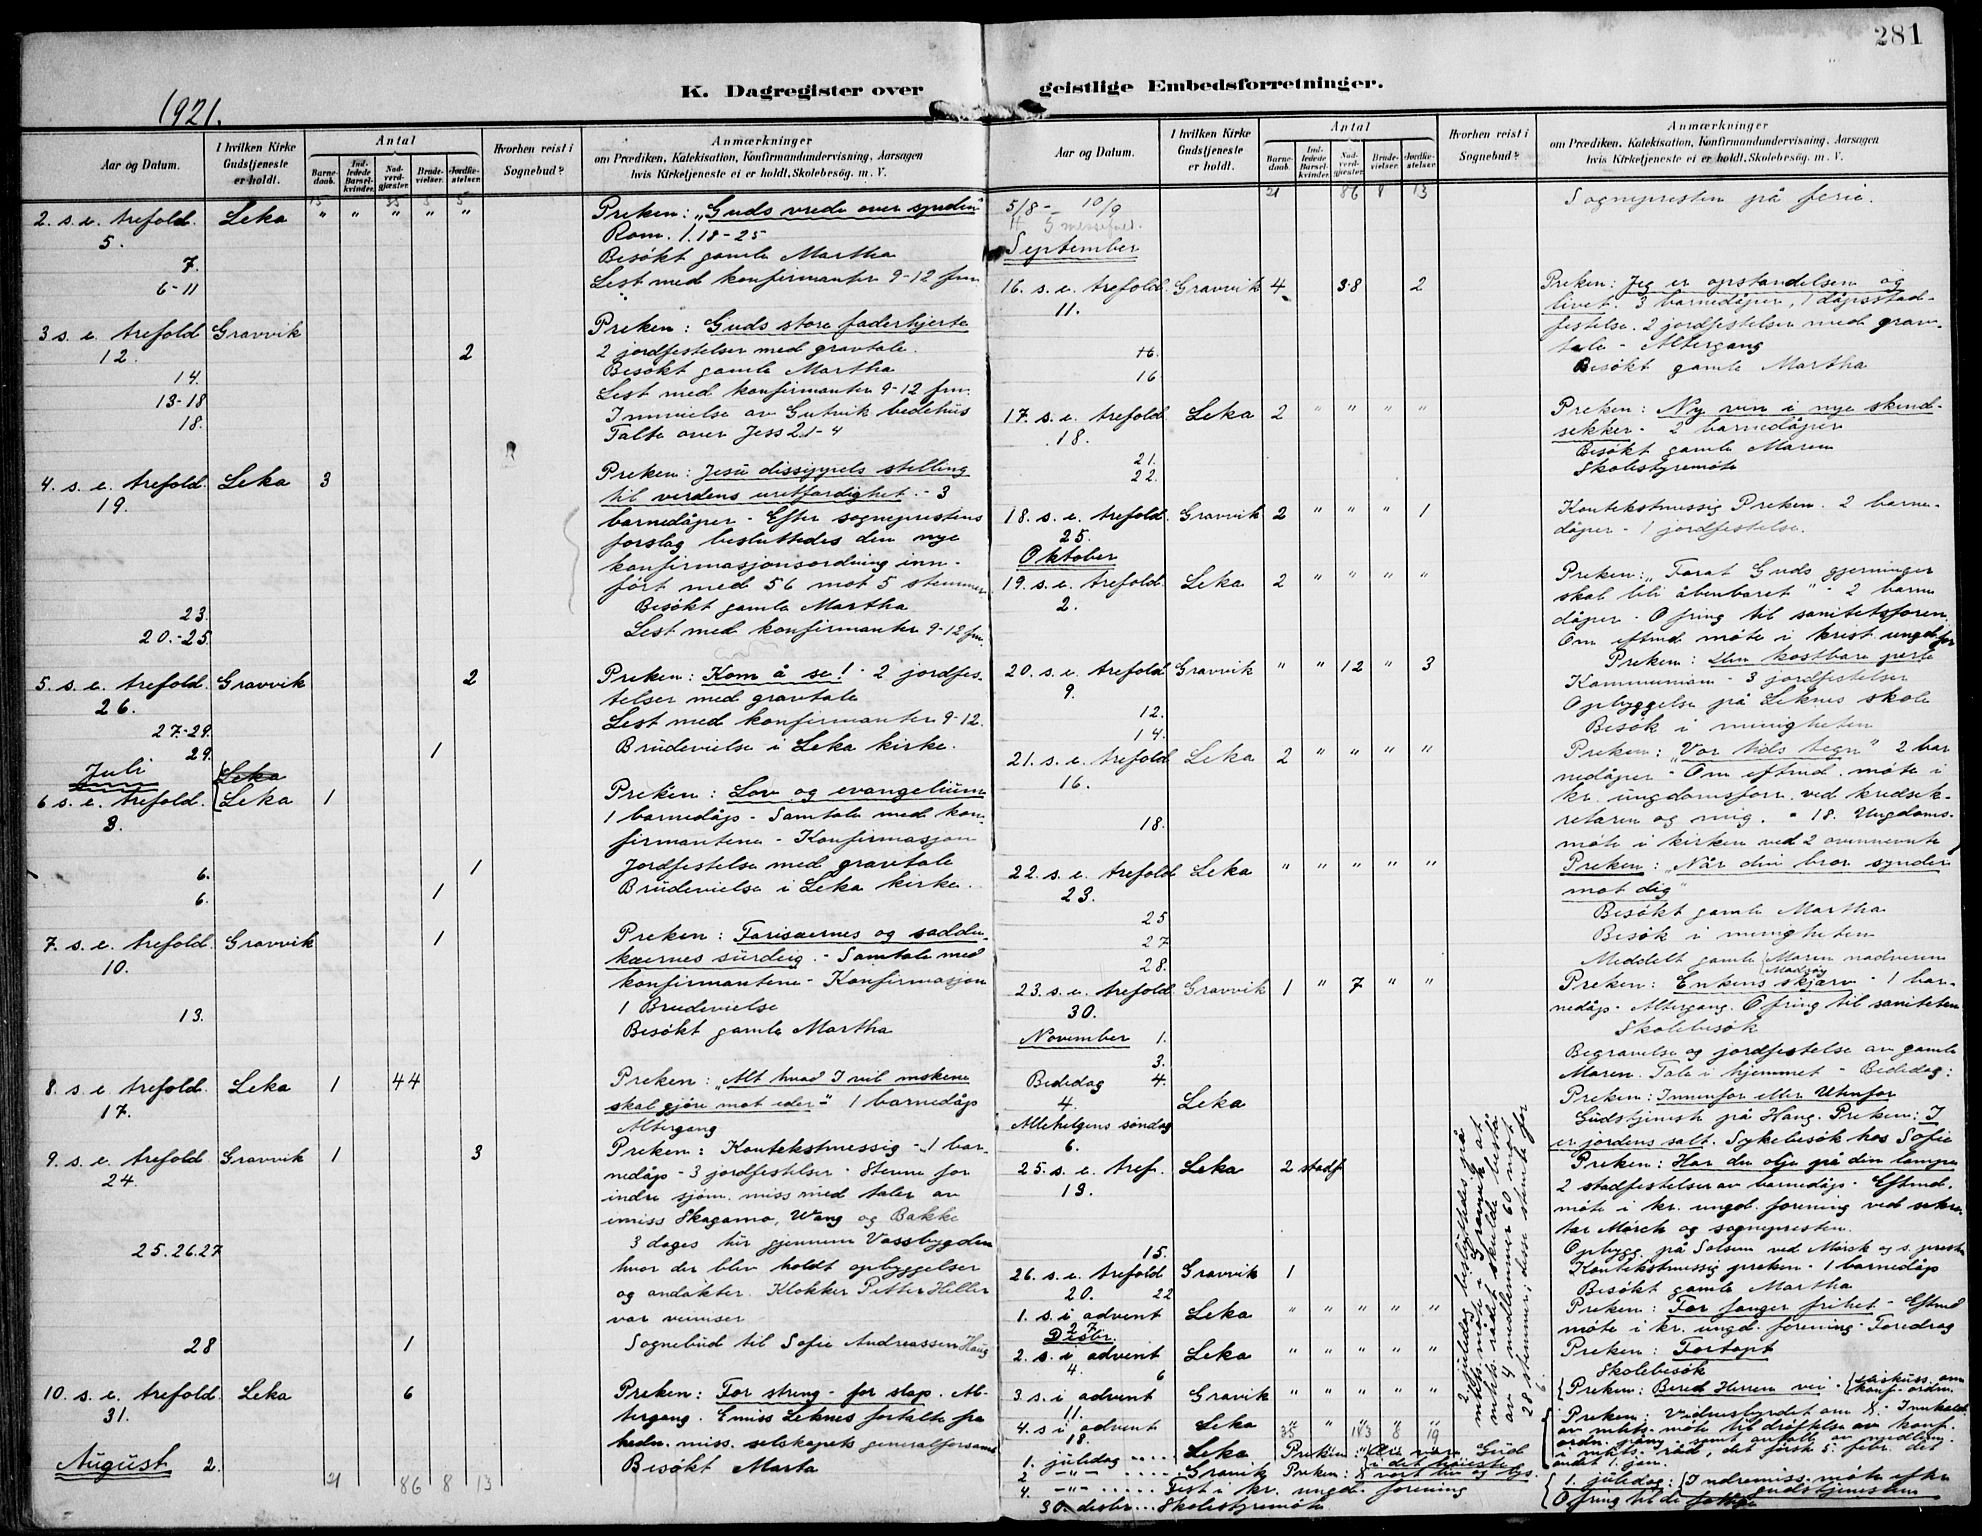 281
K. Dagregister over geistlige Embedsforretninger.
1921.
Aar og Datum.
I hvilken Kirke Gudstjeneste er holdt.
Antal
Barnedaab.
Indledede Barselkvinder.
Nadverdgjæster.
Brudevielser.
Jordfæstelser.
Hvorhen reist i Sognebud?
Anmærkninger
om Prædiken, Katekisation, Konfirmandundervisning, Aarsagen
hvis Kirketjeneste ei er holdt, Skolebesøg. m. V.
2. s. e. trefold. Leka " " " " " Preken: "Guds vrede over synden"
5. Rom. 1.18-25
7. Besökt gamle Martha
6-11 Lest med konfirmanter 9-12 fm.
3 s. e. trefold Gravvik Preken: Guds store faderhjerte
12. 2 2 jordfestelser med gravtale.
14. Besökt gamle Martha
13-18 Lest med konfirmanter 9-12 fm.
18. Innvielse av Gutvik bedehus
Talte over Jess 2.1-4
4. s. e. trefold. Leka 3 Preken: Jesu dissipels stilling
19. til verdens uretfærdighet. - 3
barnedåper - Efter sogneprestens
forslag besluttedes den nye
konfirmasjonsordning inn-
ført med 56 mot 5 stemmer
23. Besökt gamle Martha
20.-25. Lest med konfirmanter 9-12 fm.
5. s. e. trefold. Gravvik 2 Preken: Kom å se! - 2 jordfes-
26. telser med gravtale
27.-29. Lest med konfirmanter 9-12.
29. 1 Brudevielse i Leka kirke.
Juli Leka
6 s. e. trefold. Leka 1 Preken: Lov og evangelium
3. 1 barnedåp - Samtale med kon-
firmantene - Konfirmasjon
6. 1 Jordfestelse med gravtale
6. 1 Brudevielse i Leka kirke.
7. s. e. trefold. Gravvik 1 Preken: Farisæernes og saddu-
10. kæernes surdeig. - Samtale med
konfirmantene - Konfirmasjon
1 Brudevielse
13. Besökt gamle Martha
8. s. e. trefold. Leka 1 44 Preken: "Alt hvad I vil mskene
17. skal gjöre mot eder" 1 barnedåp
Altergang
9. s. e. trefold. Gravvik 1 3 Preken: Kontekstmessig - 1 bar-
24. nedåp - 3 jordfestelser - Stevne for
indre sjöm. miss med taler av
emiss Skagamo, Wang og Bakke
25.26.27 3 dages tur gjennem Vassbygden
hvor der blev holdt opbyggelser
og andakter. Klokker Petter Heller
var veiviser
28 1 Sognebud til Sofie Andreassen Haug
10. s. e. trefold. Leka 6 Preken: For streng - for slap. Al-
31. tergang. Emiss Leknes fortalte fra
hedn. miss. selskapets generalforsaml
August 2. Besökt Marta
21 86 8 13
Aar og Datum.
I hvilken Kirke Gudstjeneste er holdt.
Antal
Barnedaab.
Indledede Barselkvinder.
Nadverdgjæster.
Brudevielser.
Jordfæstelser.
Hvorhen reist i Sognebud?
Anmærkninger
om Prædiken, Katekisation, Konfirmandundervisning, Aarsagen
hvis Kirketjeneste ei er holdt. Skolebesøg. m. V.
21 86 8 13
5/8 - 10/9 Sognepresten på ferie.
September
16. s. e. trefold. Gravvik 4 38 2 Preken: Jeg er opstandelsen og
11. livet. 3 barnedåper, 1 dåpsstad-
festelse. 2 jordfestelser med grav-
tale - Altergang
16 Besökt gamle Martha
17. s. e. trefold. Leka 2 " " " " Preken: Ny vin i nye skind-
18. sekker - 2 barnedåper
21. Besökt gamle Maren
22. Skolestyremöte
18. s. e. trefold. Gravvik 2 " " " 1 Kontekstmessig Preken. 2 barne-
25. dåper - 1 jordfestelse.
Oktober
19. s. e. trefold. Leka 2 " " " " Preken: "Forat Guds gjerninger
2. skal bli åbenbaret" - 2 barne
dåper - Ofring til sanitetsforen.
Om eftmd möte i krist. ungd.for
20. s. e. trefold Gravvik " " 12 " 3 Preken: Den kostbare perle
9. Kommunion - 3 jordfestelser
12. Opbyggelse på Leknes skole
14. Besök i menigheten
21. s. e. trefold. Leka 2 " " " " Preken: "Vor tids tegn" 2 bar
16. nedåper - Om eftmd. möte i
kr. ungdomsforr. ved kredsek-
18. retæren og mig. - 18. Ungdoms-
möte i kirken ved 2 ovennevnte
22. s. e. trefold Leka " " " " " Preken: "Når din bror synder
23. mot dig"
25 Besökt gamle Martha
27 Besök i menigheten
28. Meddelt gamle Maren nadveren
23. s. e. trefold. Gravvik 1 " 7 " " Preken: Enkens skjærv - 1 bar-
30. nedåp - Altergang. Ofring til saniteten
November 1. Skolebesök
3. Begravelse og jordfestelse av gamle
Bededag 4. Maren. Tale i hjemmet - Bededag:
4. Leka Preken: Innenfor eller Utenfor
Allehelgens söndag Gudstjeneste på Haug. Preken: I
6. er jordens salt. Sykebesök hos Sofie
25. s. e. tref. Leka 2 stadf Preken: Har du olje på din lampe
13. 2 stadfestelser av barnedåp - Eftmd.
möte i kr. ungd. forening ved sekre-
tær Mörch og sognepresten.
15. Opbygg. på Solsem ved Mörch og s. presten
26. s. e. trefold Gravvik 1 Kontekstmessig preken - 1 barnedåp
20. 22 Besökt gamle Martha
1. s. i advent Leka " " " " " Preken: For fanger frihet - Eftmd
27. möte i kr. ungd. forening - Foredrag
Desbr.
2. s. i advent Leka " " " " " Preken: Fortapt
4. 6 Skolebesök
3. s. i advent Gravvik " " " " " Preken: Bered Herren vei - diskuss. om konf. ordn.
11.
4. s i advent Leka 35 143 8 19 Preken: Vidnesbyrdet om
18.
1. juledag .... Leka Preken:
2 -"- .... Gravvik Preken: vort liv og lys.
4. -"- .... Fest i kr. ungd. forening
30. desbr... Skolestyremöte
1. juledag: Indremiss. möte efter gudstjenesten
Ofring til de fattige
2. juledag besluttedes på
mkts. möte i Gravvik at
mkts. rådet skulde bestå
av 4 medlemmer 60 mot
28 stemmer; disse stemte for
6.